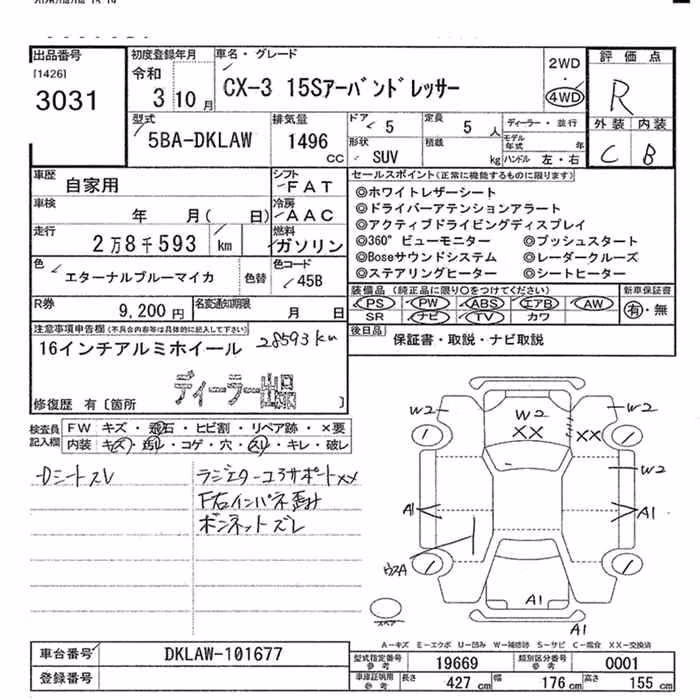 出品番号
[1426]
3031
初度登録年月
令和
3 10月
車名・グレード
CX-3 15Sアーバンドレッサー
2WD
・
4WD
評価点
R
外装 内装
C B
型式
5BA-DKLAW
排気量
1496
CC
ドア
5
定員
5 人
形状
SUV
積載
kg
ディーラー・並行
モデル年式 年
ハンドル 左・右
車歴
自家用
シフト
FAT
車検
年 月( 日)
冷房
AAC
走行
2万8千593 km
燃料
ガソリン
色
エターナルブルーマイカ
色替
色コード
45B
R券
9,200円
名変通知期限
月 日
セールスポイント(正常に機能するものに限ります)
◎ホワイトレザーシート
◎ドライバーアテンションアラート
◎アクティブドライビングディスプレイ
◎360°ビューモニター ◎プッシュスタート
◎Boseサウンドシステム ◎レーダークルーズ
◎ステアリングヒーター ◎シートヒーター
装備品 (純正品に限り○をつけてください)
PS PW ABS エアB AW
SR ナビ TV カワ
新車保証書
有・無
後日品
保証書・取説・ナビ取説
注意事項申告欄(不具合内容等は具体的に記入して下さい)
16インチアルミホイール 28593km
ディーラー出品
修復歴 有〔箇所 〕
検査員記入欄
FW キズ・飛石・ヒビ割・リペア跡・×要
内装 キズ・汚レ・コゲ・穴・スレ・キレ・破レ
Dシートスレ
ラジエターコアサポートXX
F右インパネ
ボンネットズレ
W2 W2 W2
XX XX
W2
A1 A1
A1
A1
スペア
A－キズ E－エクボ U－凹み W－補修跡 S－サビ C－腐食 XX－交換済
車台番号
DKLAW-101677
登録番号
型式指定番号 参考
19669
類別区分番号 参考
0001
車庫証明用 参考
長さ 427 cm 幅 176 cm 高さ 155 cm